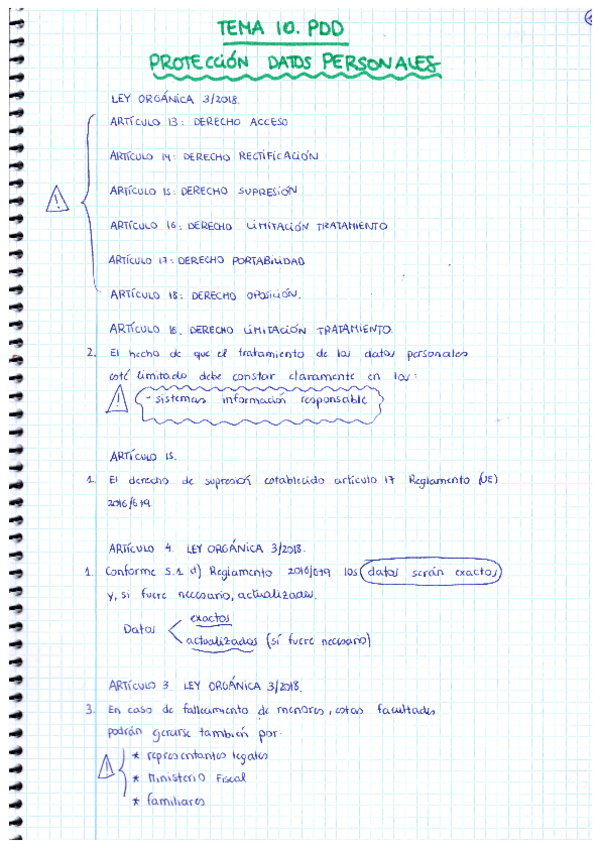 TEMA 10. PDD
PROTECCIÓN DATOS PERSONALES
LEY ORGÁNICA 3/2018.
ARTÍCULO 13: DERECHO ACCESO
ARTÍCULO 14: DERECHO RECTIFICACIÓN
ARTÍCULO 15: DERECHO SUPRESIÓN
ARTÍCULO 16: DERECHO LIMITACIÓN TRATAMIENTO
ARTÍCULO 17: DERECHO PORTABILIDAD
ARTÍCULO 18: DERECHO OPOSICIÓN.
ARTÍCULO 16. DERECHO LIMITACIÓN TRATAMIENTO.
2. El hecho de que el tratamiento de los datos personales
esté limitado debe constar claramente en los:
- sistemas información responsable
ARTÍCULO 15.
1. El derecho de supresión establecido artículo 17 Reglamento (UE)
2016/679
ARTÍCULO 4. LEY ORGÁNICA 3/2018.
1. Conforme 5.1 d) Reglamento 2016/679 los datos serán exactos
y, si fuere necesario, actualizados.
Datos
exactos
actualizados (si fuere necesario)
ARTÍCULO 3. LEY ORGÁNICA 3/2018.
3. En caso de fallecimiento de menores, estas facultades
podrán ejercerse también por:
* representantes legales
* Ministerio Fiscal
* familiares